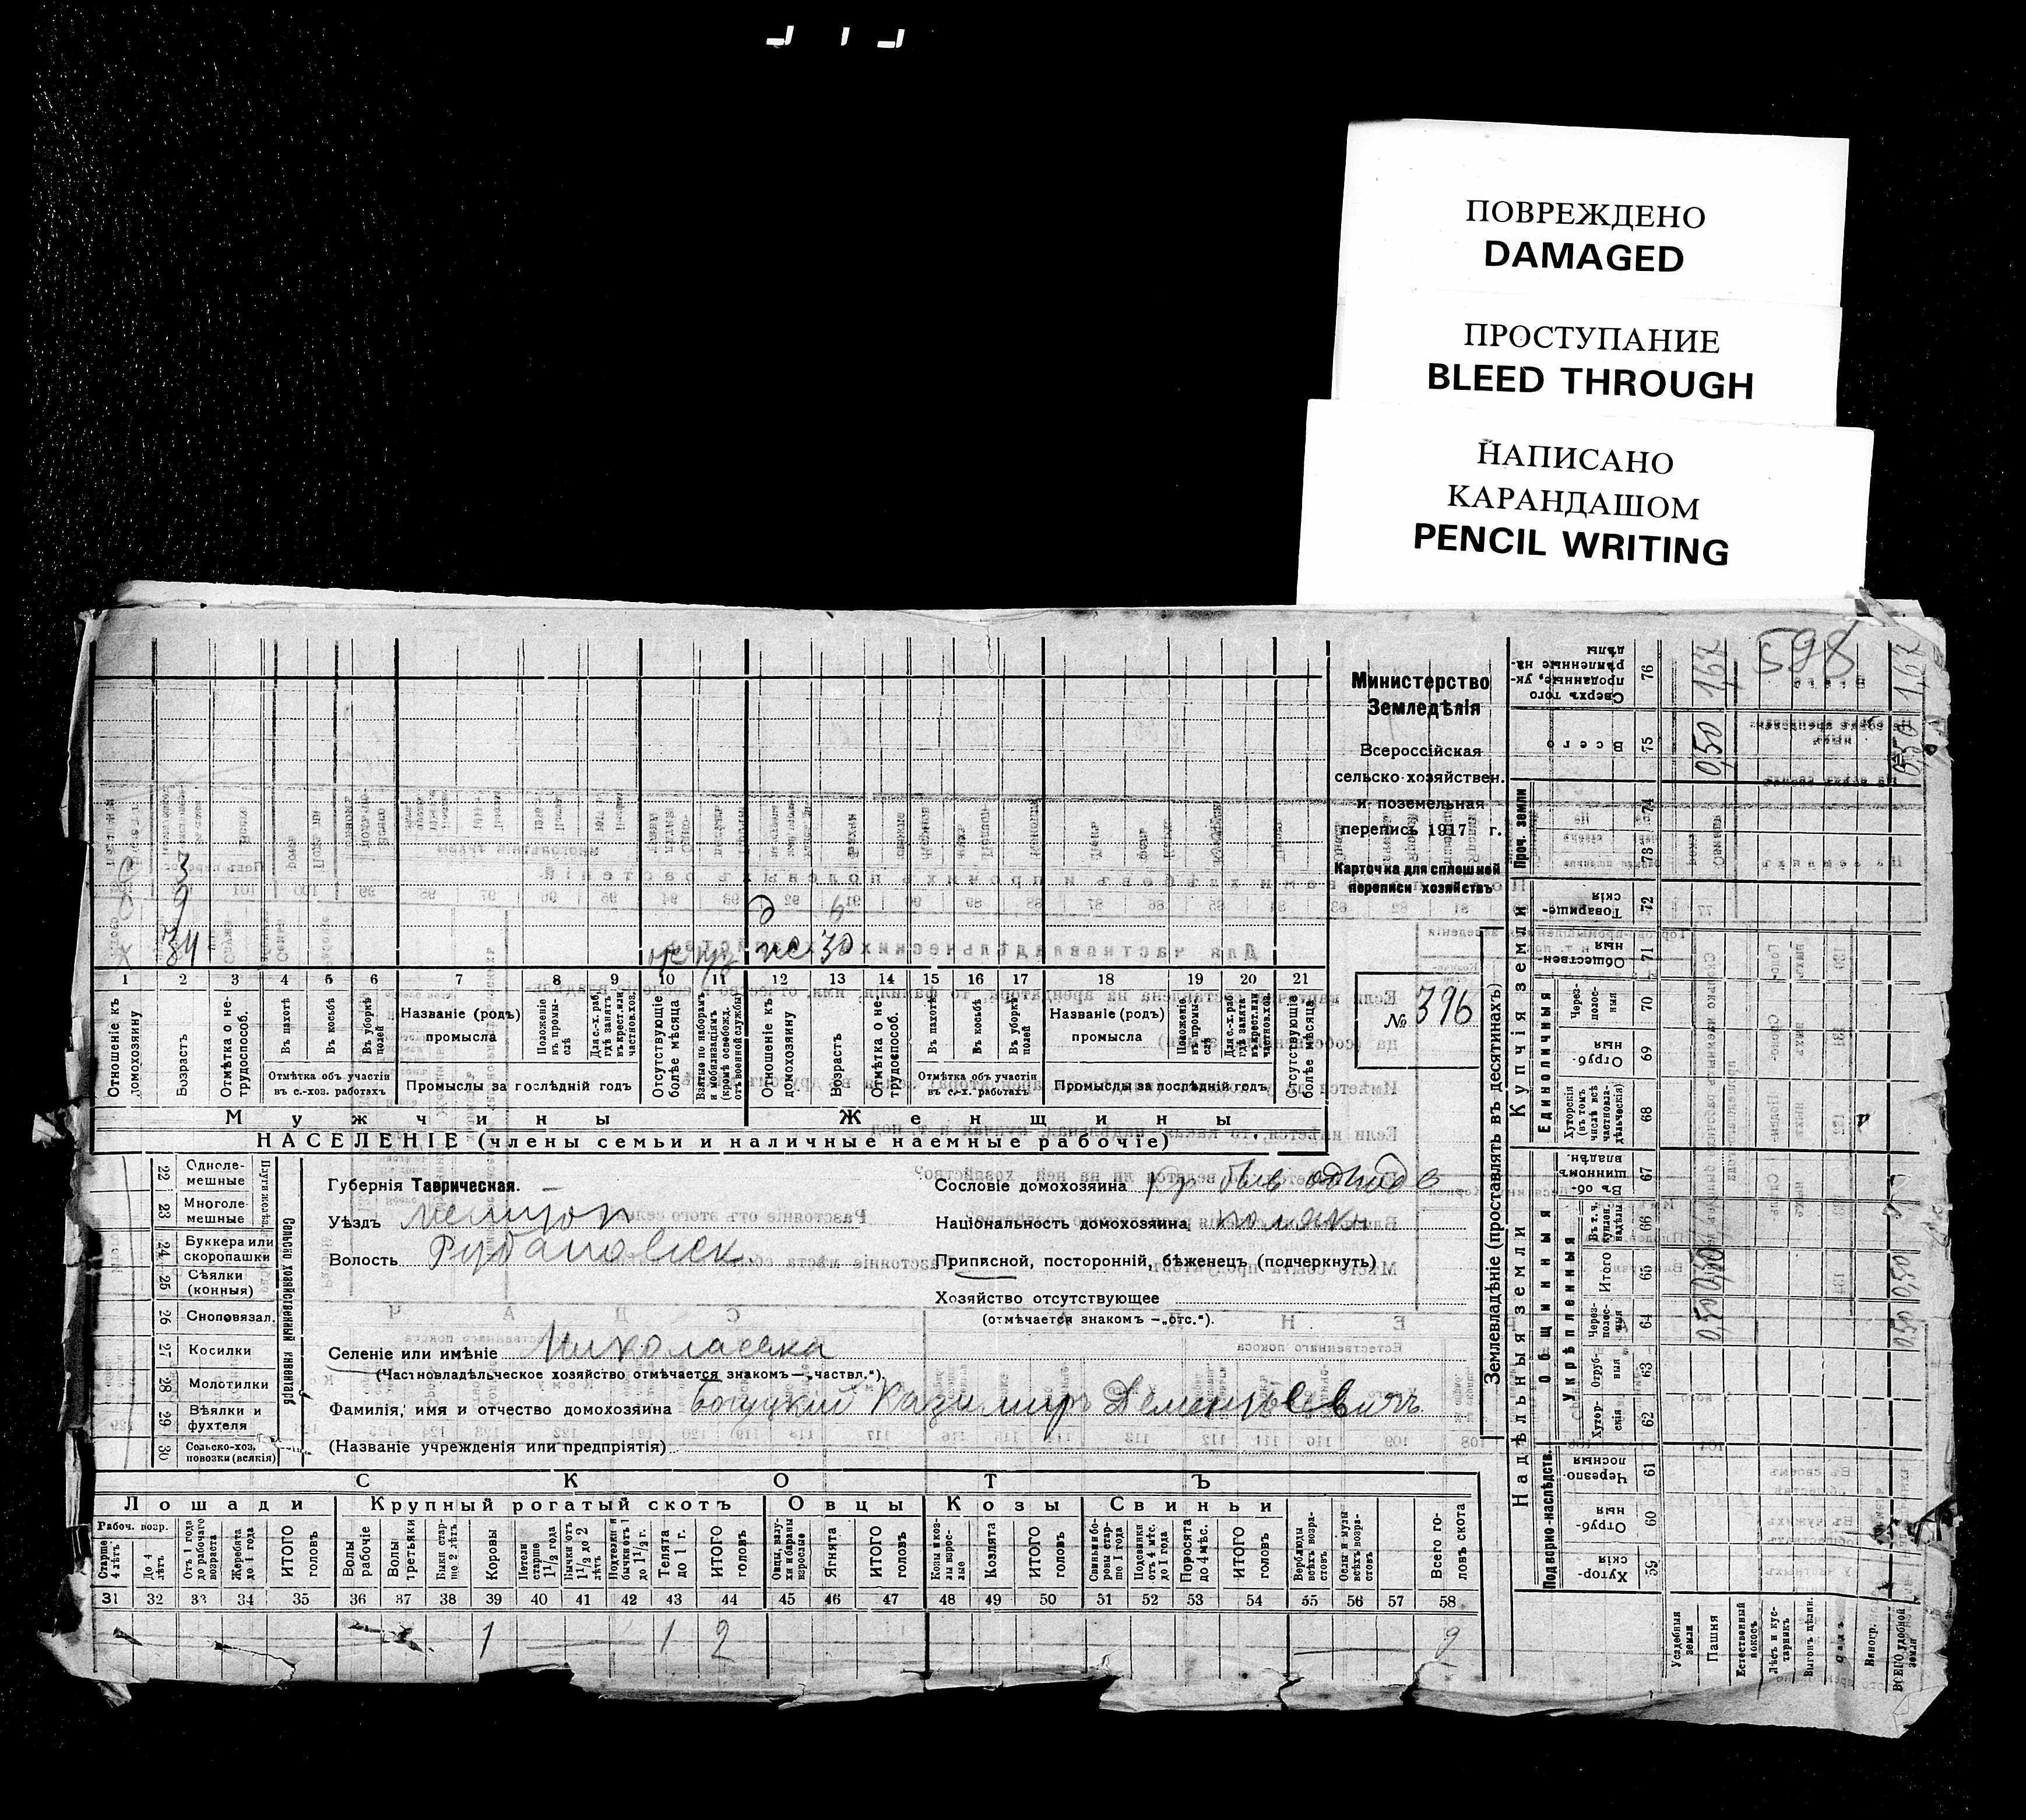 ПОВРЕЖДЕНО
DAMAGED
ПРОСТУПАНИЕ
BLEED THROUGH
НАПИСАНО
КАРАНДАШОМ
PENCIL WRITING
598
Министерство
Земледѣлія
Всероссійская
сельско-хозяйствен.
и поземельная
перепись 1917 г.
Карточка для сплошной
переписи хозяйствъ
№ 396
с 3
с 9 д 6
х 34 же 30
1 2 3 4 5 6 7 8 9 10 11 12 13 14 15 16 17 18 19 20 21
Отношеніе къ домохозяину
Возрастъ
Отмѣтка о не-трудоспособ.
Въ пахотѣ
Въ косьбѣ
Въ уборкѣ полей
Отмѣтка объ участіи въ с.-хоз. работахъ
Названіе (родъ) промысла
Положеніе въ промыслѣ
Для с.-х. раб. гдѣ занятъ въ крест. или частнов. хоз.
Промыслы за послѣдній годъ
Отсутствующіе болѣе мѣсяца
Взятые по наборамъ и мобилизаціямъ (кромѣ освобожд. отъ военной службы)
Отношеніе къ домохозяину
Возрастъ
Отмѣтка о не-трудоспособ.
Въ пахотѣ
Въ косьбѣ
Въ уборкѣ полей
Отмѣтка объ участіи въ с.-х. работахъ
Названіе (родъ) промысла
Положеніе въ промыслѣ
Для с.-х. раб. гдѣ занята въ крест. или частнов. хоз.
Промыслы за послѣдній годъ
Отсутствующіе болѣе мѣсяца
Мужчины Женщины
НАСЕЛЕНІЕ (члены семьи и наличные наемные рабочіе)
Губернія Таврическая.
Уѣздъ Мелитоп
Волость Рубановск.
Сословіе домохозяина кр.
Національность домохозяина полякъ
Приписной, посторонній, бѣженецъ (подчеркнуть)
Хозяйство отсутствующее
(отмѣчается знакомъ —„отс.“).
Селеніе или имѣніе Николаевка
(Частновладѣльческое хозяйство отмѣчается знакомъ—„частвл.“).
Фамилія, имя и отчество домохозяина Богуцкий Казимиръ Дементьевичъ
(Названіе учрежденія или предпріятія)
Сельско-хозяйственный инвентарь
Плуги желѣз.
22 Одноле-мешные
23 Многоле-мешные
24 Буккера или скоропашки
25 Сѣялки (конныя)
26 Сноповязал.
27 Косилки
28 Молотилки
29 Вѣялки и фухтеля
30 Сельско-хоз. повозки (всякія)
СКОТЪ
Лошади Крупный рогатый скотъ Овцы Козы Свиньи
Рабоч. возр.
Старше 4 лѣтъ
До 4 лѣтъ
Отъ 1 года до рабочаго возраста
Жеребята до 1 года
ИТОГО головъ
Волы рабочіе
Волы третьяки
Быки старше 2 лѣтъ
Коровы
Нетели старше 1½ года
Бычки отъ 1½ до 2 лѣтъ
Подтелки и бычки отъ 1 до 1½ г.
Телята до 1 г.
ИТОГО головъ
Овцы, валухи и бараны взрослые
Ягнята
ИТОГО головъ
Козы и козлы взрослые
Козлята
ИТОГО головъ
Свиньи боровы старше 1 года
Подсвинки отъ 4 мѣс. до 1 года
Поросята до 4 мѣс.
ИТОГО головъ
Верблюды всѣхъ возрастовъ
Ослы и мулы всѣхъ возрастовъ
Всего головъ скота
31 32 33 34 35 36 37 38 39 40 41 42 43 44 45 46 47 48 49 50 51 52 53 54 55 56 57 58
1 1 2 2
Землевладѣніе (проставлять въ десятинахъ)
Надѣльныя земли Купчія земли Проч. земли
Подворно-наслѣдств.
Общинныя
Укрѣпленныя
Единоличныя
Хуторскія 59
Отрубныя 60
Черезполосныя 61
Хуторскія 62
Отрубныя 63
Черезполосныя 64
Итого 65
В т. ч. куплен. надѣлы 66
Въ общинномъ владѣн. 67
Хуторскія (въ томъ числѣ всѣ частновладѣльческія) 68
Отрубныя 69
Черезполосныя 70
Общественныя 71
Товарищескія 72
73
74
Всего 75
Сверхъ того проданные, укрѣпленные надѣлы 76
Усадебныя земли
Пашня 0,50 0,50 0,50 1,67
Естественный покосъ
Лѣсъ и кустарникъ
Выгонъ цѣлин.
Садъ
Виногр.
ВСЕГО удобной земли 0,50 0,50 0,50 1,67